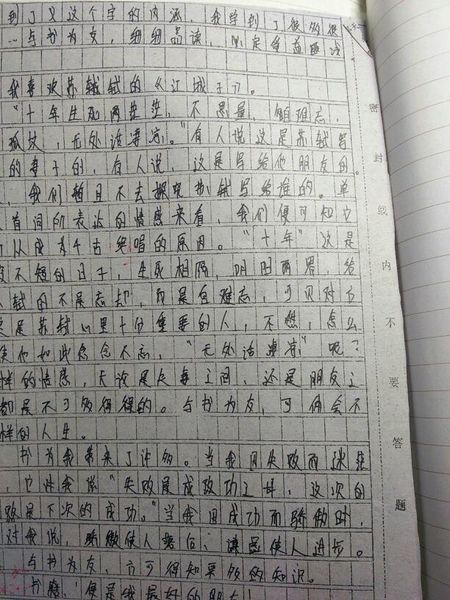 到了义这个字的内涵，我学到了很多很
与书为友，细细品读，
我喜欢苏轼的《江城子》。
"十年生死两茫茫，不思量，自难忘，
孤坟，无处话凄凉。"有人说这是苏轼写
的妻子的，有人说，这是写给他朋友的。
，我们暂且不去 轼写给谁的。单
首词所表达的情感来看，我们便可知它
以成为千古绝唱的原因。"十年"这是
不短的日子，生死相隔，阴阳两界，给
轼的不是忘却，而是自难忘，可见对方
是苏轼心里十分重要的人，不然，怎么
使他如此念念不忘，"无处话凄凉"呢？
样的情感，无论是夫妻之间，还是朋友之
都是不可多得的。与书为友，可体会不
样的人生。
书为我带来了许多。当我因失败而迷茫
，它对我说"失败是成功之母，这次的
败是下次的成功。"当我因成功而骄傲时，
对我说，骄傲使人落后，谦虚使人进步。
与书为友，方可得知更多的知识。
书籍，便是我最好的朋友！
密封线内不要答题